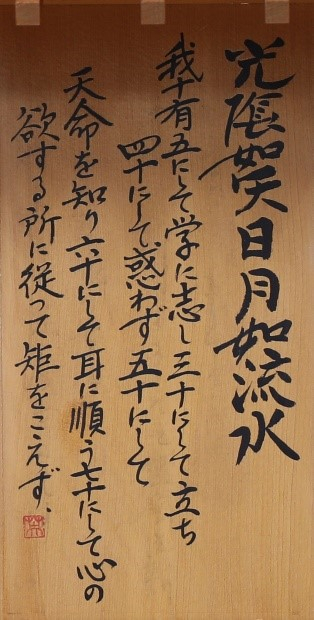 光陰如矢日月如流水
我十有五にして学に志し三十にして立ち
四十にして惑わず五十にして
天命を知り六十にして耳に順う七十にして心の
欲する所に従って矩をこえず、